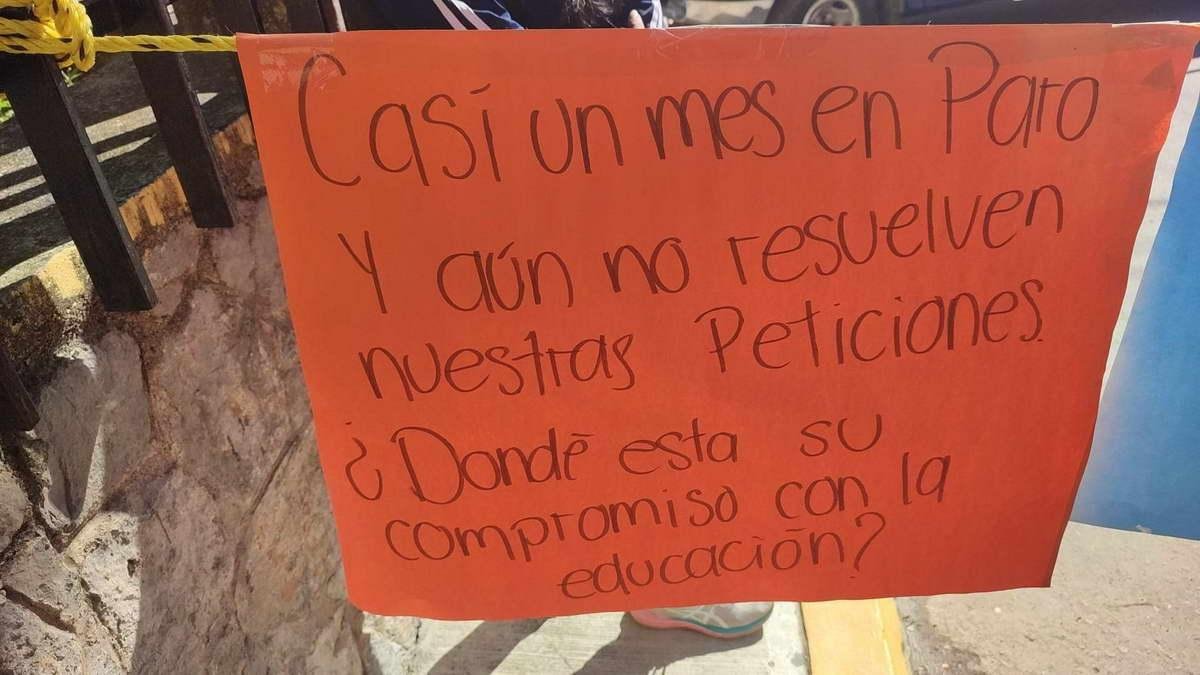 Casí un mes en Paro
Y aún no resuelven
nuestras Peticiones.
¿Dondé esta su
compromiso con la
educación?